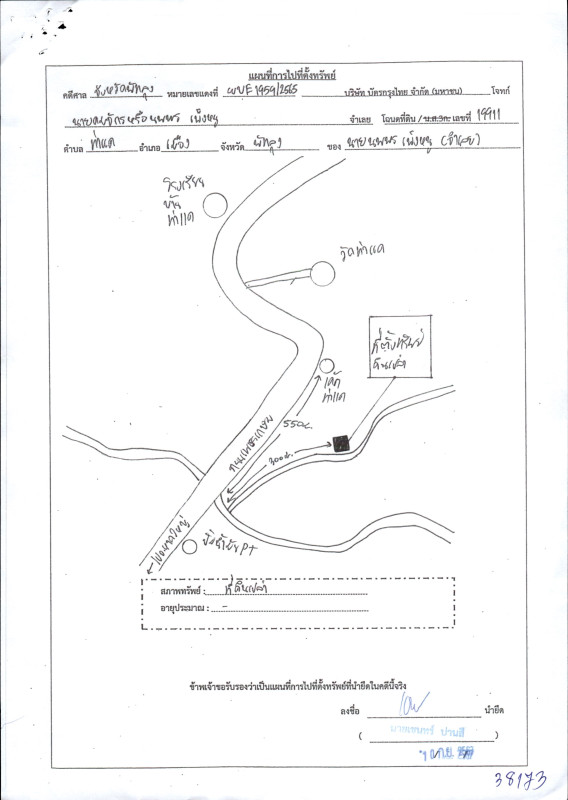 แผนที่การไปที่ตั้งทรัพย์
คดีศาล จังหวัดพัทลุง หมายเลขแดงที่ ผบE1959/2565 บริษัท บัตรกรุงไทย จำกัด (มหาชน) โจทก์
นพพร เพ็งหนู จำเลย โฉนดที่ดิน/น.ส.3ก. เลขที่ 19911
ตำบล ท่าแค อำเภอ เมือง จังหวัด พัทลุง ของ นายนพพร เพ็งหนู (จำเลย)
โรงเรียน
บ้าน
ท่าแค
วัดท่าแค
ที่ตั้งทรัพย์
ดินเปล่า
ท่าแค
550ม.
ถนนเพชรเกษม
300ม.
ไปหาดใหญ่
ปั๊มน้ำมัน PT
สภาพทรัพย์ : ที่ดินเปล่า
อายุประมาณ : -
ข้าพเจ้าขอรับรองว่าเป็นแผนที่การไปที่ตั้งทรัพย์ที่นำยึดในคดีนี้จริง
ลงชื่อ นำยึด
38173